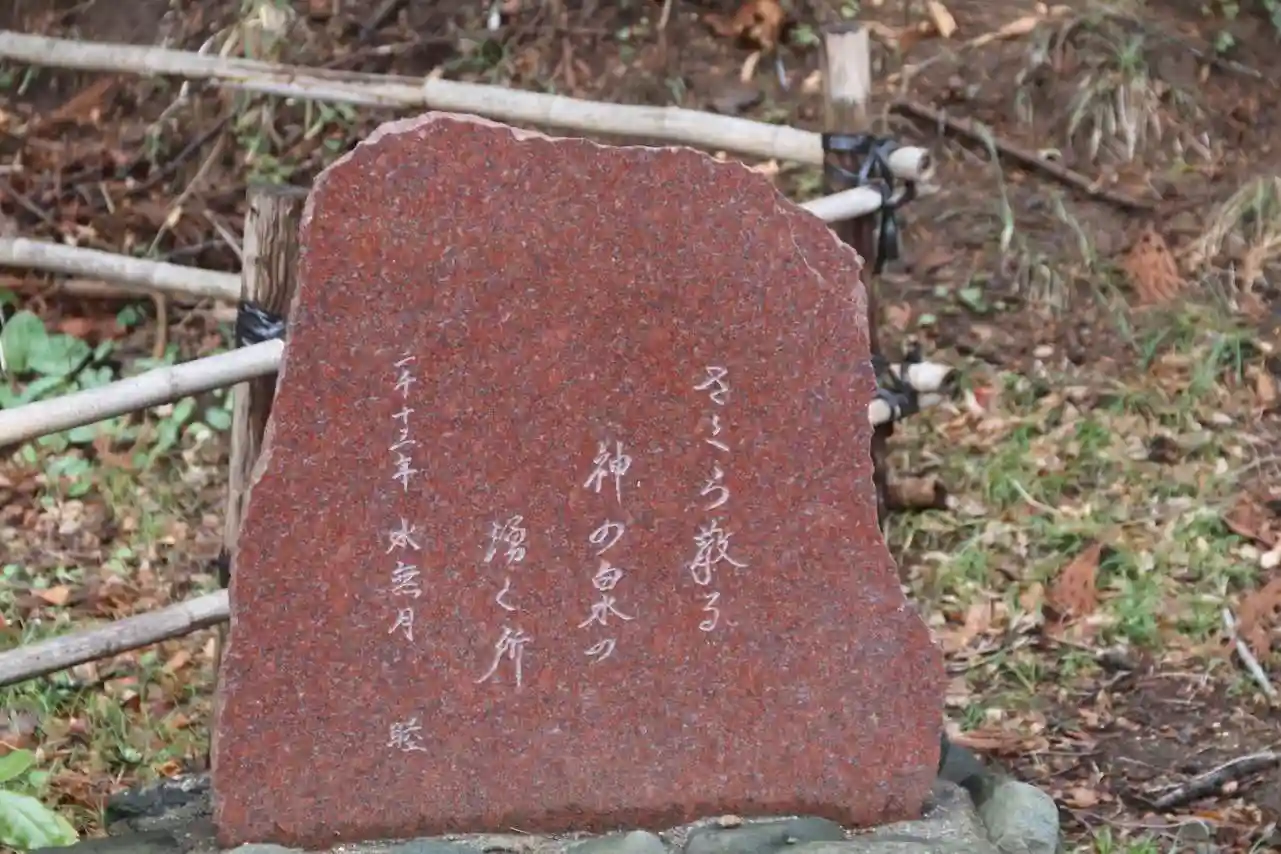 さくら散る
神の泉の
湧く所
二千十三年 水無月 睦